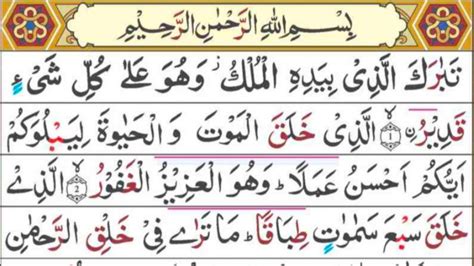 بِسْمِ اللهِ الرَّحْمٰنِ الرَّحِيْمِ
تَبٰرَكَ الَّذِىْ بِيَدِهِ الْمُلْكُ ز وَهُوَ عَلٰى كُلِّ شَىْءٍ
قَدِيْرُ ۨ ۙ ١ الَّذِىْ خَلَقَ الْمَوْتَ وَ الْحَيٰوةَ لِيَبْلُوَكُمْ
اَيُّكُمْ اَحْسَنُ عَمَلًا ؕ وَهُوَ الْعَزِيْزُ الْغَفُوْرُ ۙ ٢ الَّذِىْ
خَلَقَ سَبْعَ سَمٰوٰتٍ طِبَاقًا ؕ مَا تَرٰى فِىْ خَلْقِ الرَّحْمٰنِ